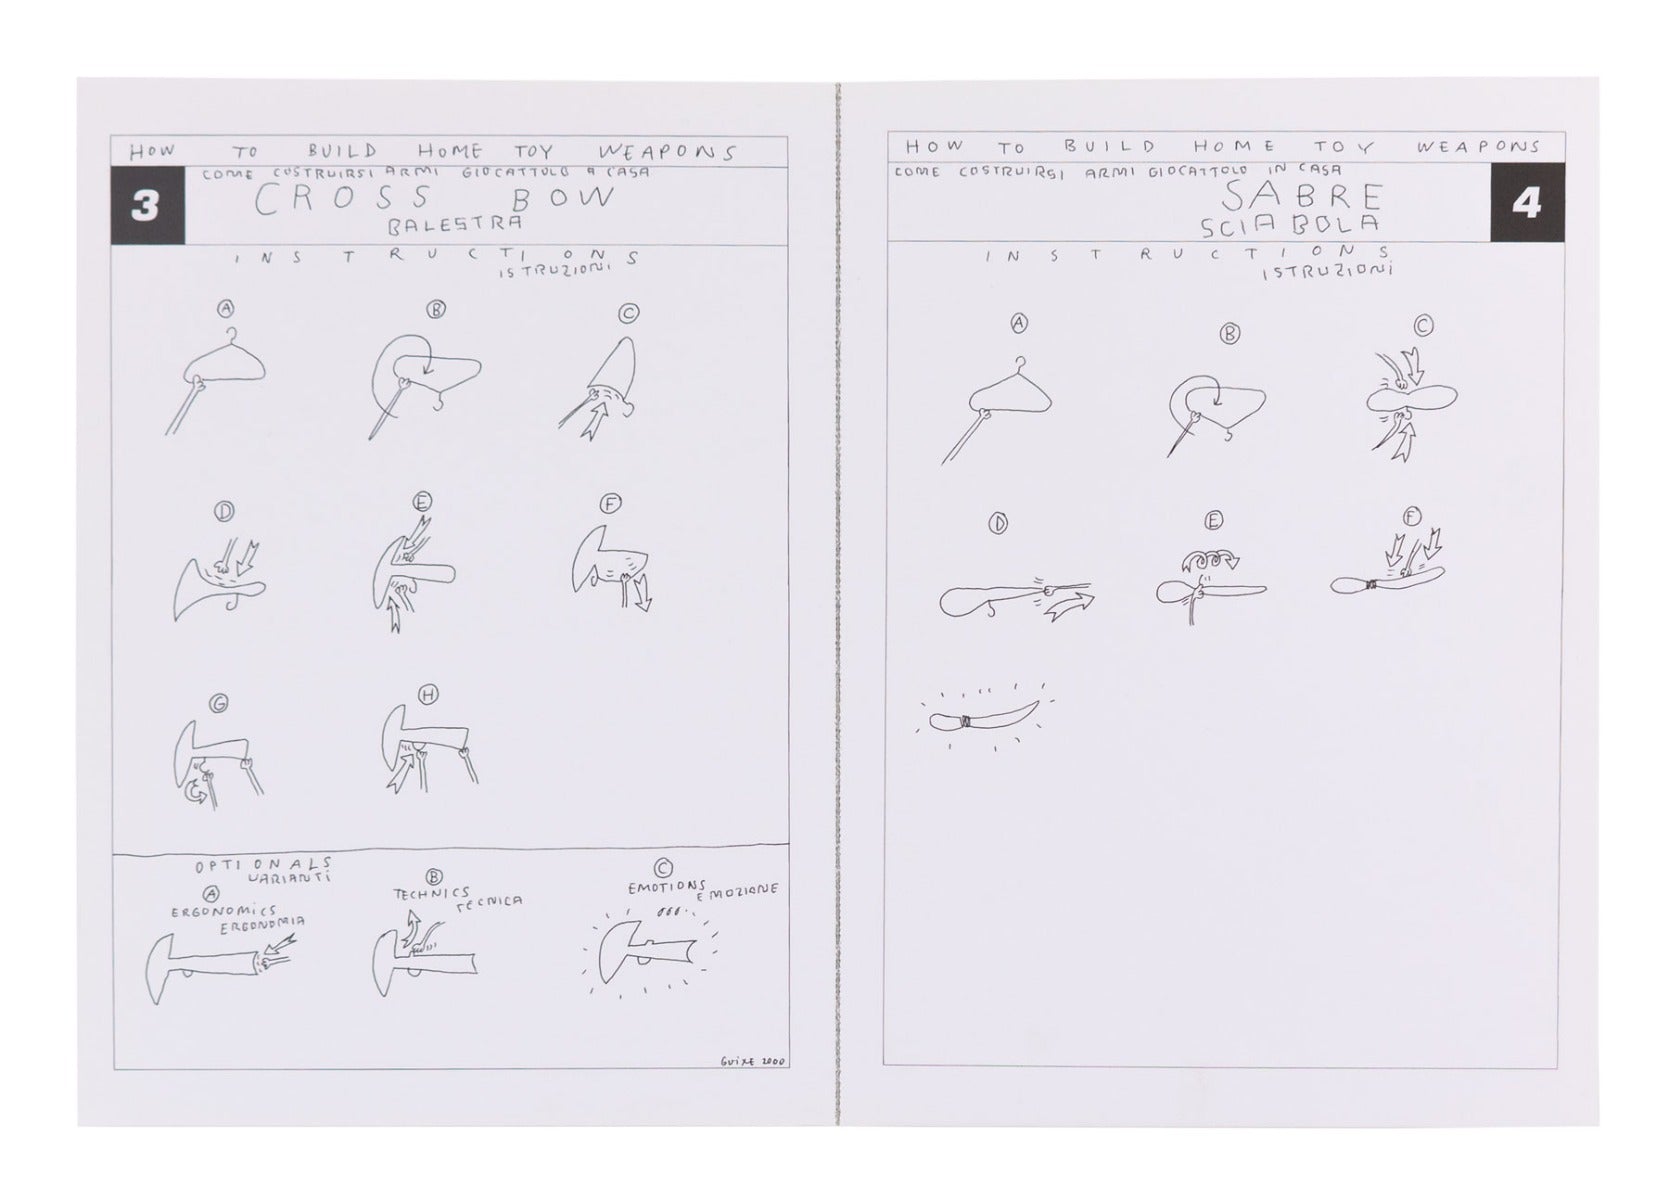 HOW TO BUILD HOME TOY WEAPONS
COME COSTRUIRSI ARMI GIOCATTOLO A CASA
3
CROSS BOW
BALESTRA
INSTRUCTIONS
ISTRUZIONI
A
B
C
D
E
F
G
H
OPTIONALS
VARIANTI
A
ERGONOMICS
ERGONOMIA
B
TECHNICS
TECNICA
C
EMOTIONS
EMOZIONE
GUIXE 2000
HOW TO BUILD HOME TOY WEAPONS
COME COSTRUIRSI ARMI GIOCATTOLO IN CASA
SABRE
4
SCIABOLA
INSTRUCTIONS
ISTRUZIONI
A
B
C
D
E
F